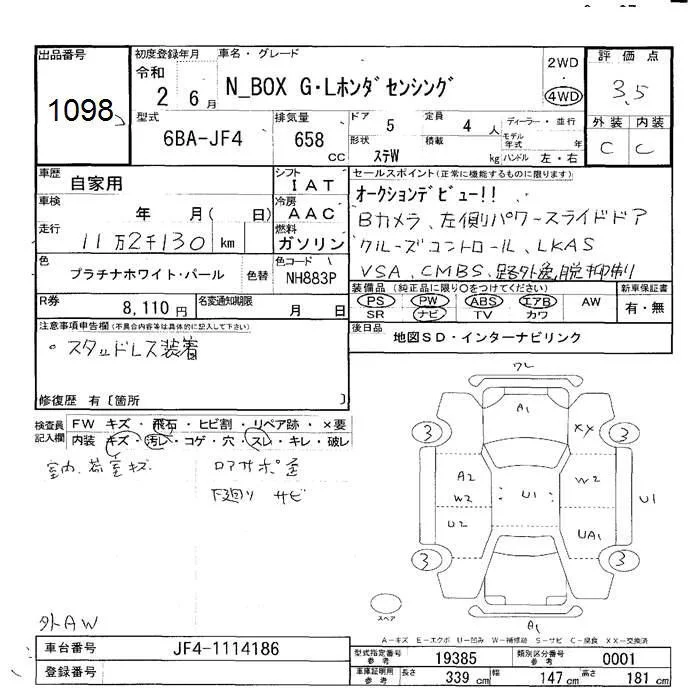 出品番号
1098
初度登録年月
令和
2 6月
車名・グレード
N_BOX G・Lホンダセンシング
2WD
・
4WD
評価点
3.5
外装 内装
C C
型式
6BA-JF4
排気量
658
CC
ドア
5
定員
4人
形状
ステW
積載
kg
ディーラー・並行
モデル年式 年
ハンドル 左・右
車歴
自家用
シフト
IAT
車検
年 月( 日)
冷房
AAC
走行
11万2千130 km
燃料
ガソリン
色
プラチナホワイト・パール
色替
色コード
NH883P
R券
8,110円
名変通知期限
月 日
セールスポイント(正常に機能するものに限ります)
オークションデビュー!!
Bカメラ、左側リパワースライドドア
クルーズコントロール、LKAS
VSA、CMBS、路外逸脱抑制
装備品(純正品に限り○をつけてください)
PS PW ABS エアB AW
SR ナビ TV カワ
新車保証書
有・無
後日品
地図SD・インターナビリンク
注意事項申告欄(不具合内容等は具体的に記入して下さい)
・スタッドレス装着
修復歴 有〔箇所 〕
検査員
記入欄
FW キズ・飛石・ヒビ割・リペア跡・×要
内装 キズ・汚レ・コゲ・穴・スレ・キレ・破レ
室内、荷室キズ
ロアサポ歪
下廻り サビ
外AW
ワレ
A1
3
XX
3
A2
W2
U1
W2
U1
U2
UA1
3
3
スペア
A1
A-キズ E-エクボ U-凹み W-補修跡 S-サビ C-腐食 XX-交換済
車台番号
JF4-1114186
登録番号
型式指定番号
参考
19385
類別区分番号
参考
0001
車庫証明用
参考
長さ
339cm
幅
147cm
高さ
181cm